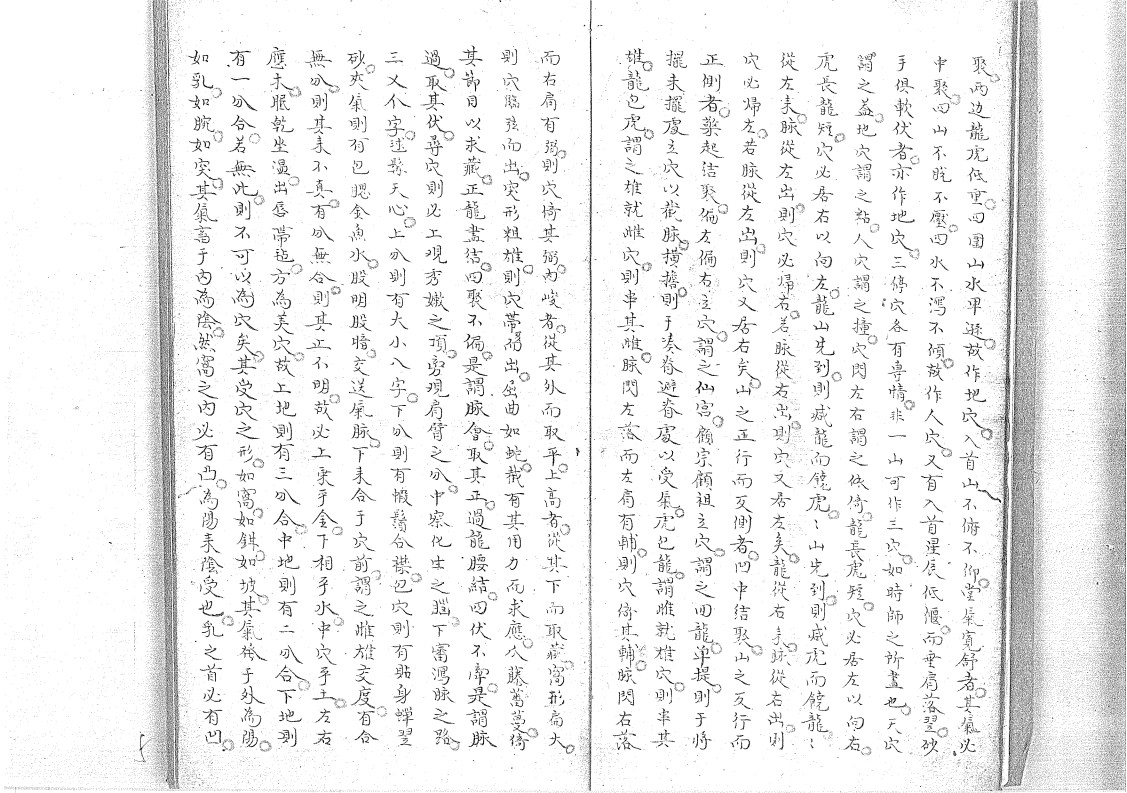 聚両边龍虎低重四囲山水平遜故作地穴入首山不俯不仰堂氣寬舒者其氣必
中聚四山不脱不壓四水不瀉不傾故作人穴又有入首星辰低偃而垂肩落翌砂
手俱軟伏者亦作地穴三停穴各有專情非一山可作三穴如時師之所盡也天穴
謂之盖地穴謂之點人穴謂之撞穴閃左右謂之依倚龍長虎短穴必居左以向右
虎長龍短穴必居右以向左龍山先到則㓕龍而饒虎〻山先到則㓕虎而饒龍〻
從左來脉從左出則穴必帰右若脉從右出則穴又居左矣龍從右來脉從右出則
穴必帰左若脉從左出則穴又居右矣山之正行而反側者凹中結聚山之反行而
正側者藥起結聚偏左偏右立穴謂之仙宮顧宗顧祖立穴謂之回龍準提則于將
擺未擺處立穴以截脉橫擔則于湊脊避脊處以受氣虎包龍謂雌就雄穴則串其
雄龍包虎謂之雄就雌穴則串其雌脉閃左落而左肩有輔則穴倚其輔脉閃右落
而右肩有弼則穴倚其弼內峻者從其外而取平上高者從其下而取藏窩形扁大
則穴臨弦而出突形粗雄則穴帶褟出屈曲如蛇哉有其用力而求應人藤蔓蔓倚
其節目以求藏正龍盡結四聚不偏是謂脉會取其正過龍腰結四伏不牽是謂脉
過取其伏尋穴則必上現秀嫩之頂旁現肩臂之分中察化生之腦下審鴻脉之路
三乂个字过䯻天心上分則有大小八字下分則有蝦鬚合襟包穴則有貼身蟬翌
砂夾氣則有包腮金魚水股明股暗交送氣脉下耒合于穴前謂之雌雄交度有合
無分則其耒不真有分無合則其正不明哉必上乘乎金下相乎水中穴乎土左右
應木眠乾坐濕出唇帶毡方為美穴哉上地則有三分合中地則有二分合下地則
有一分合若無此則不可以為穴矣其受穴之形如窩如鉗如坡其氣袴于外為陽
如乳如脘如突其氣畜于內為陰然窩之內必有凸為陽耒陰受也乳之首必有凹